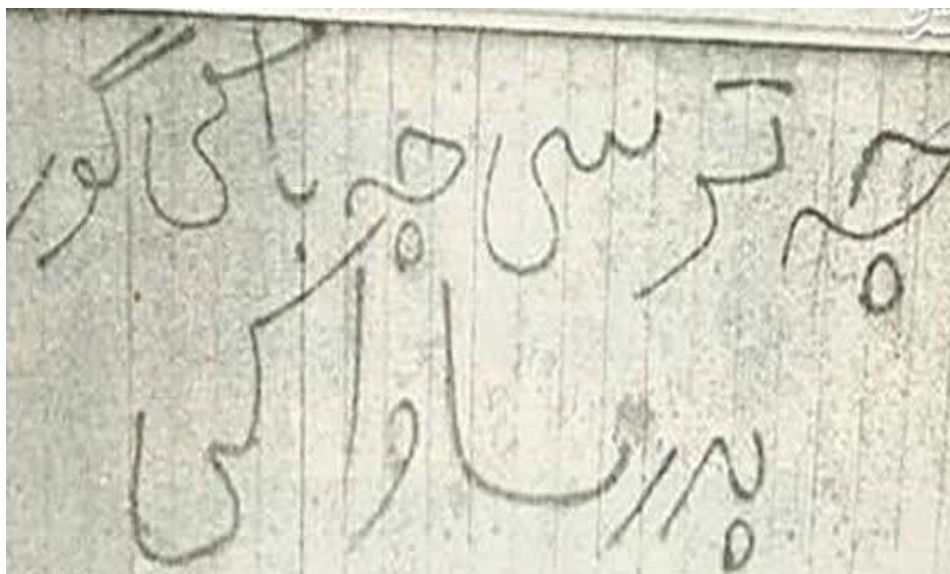 چه ترسی چه باکی گور
پدر ساواکی